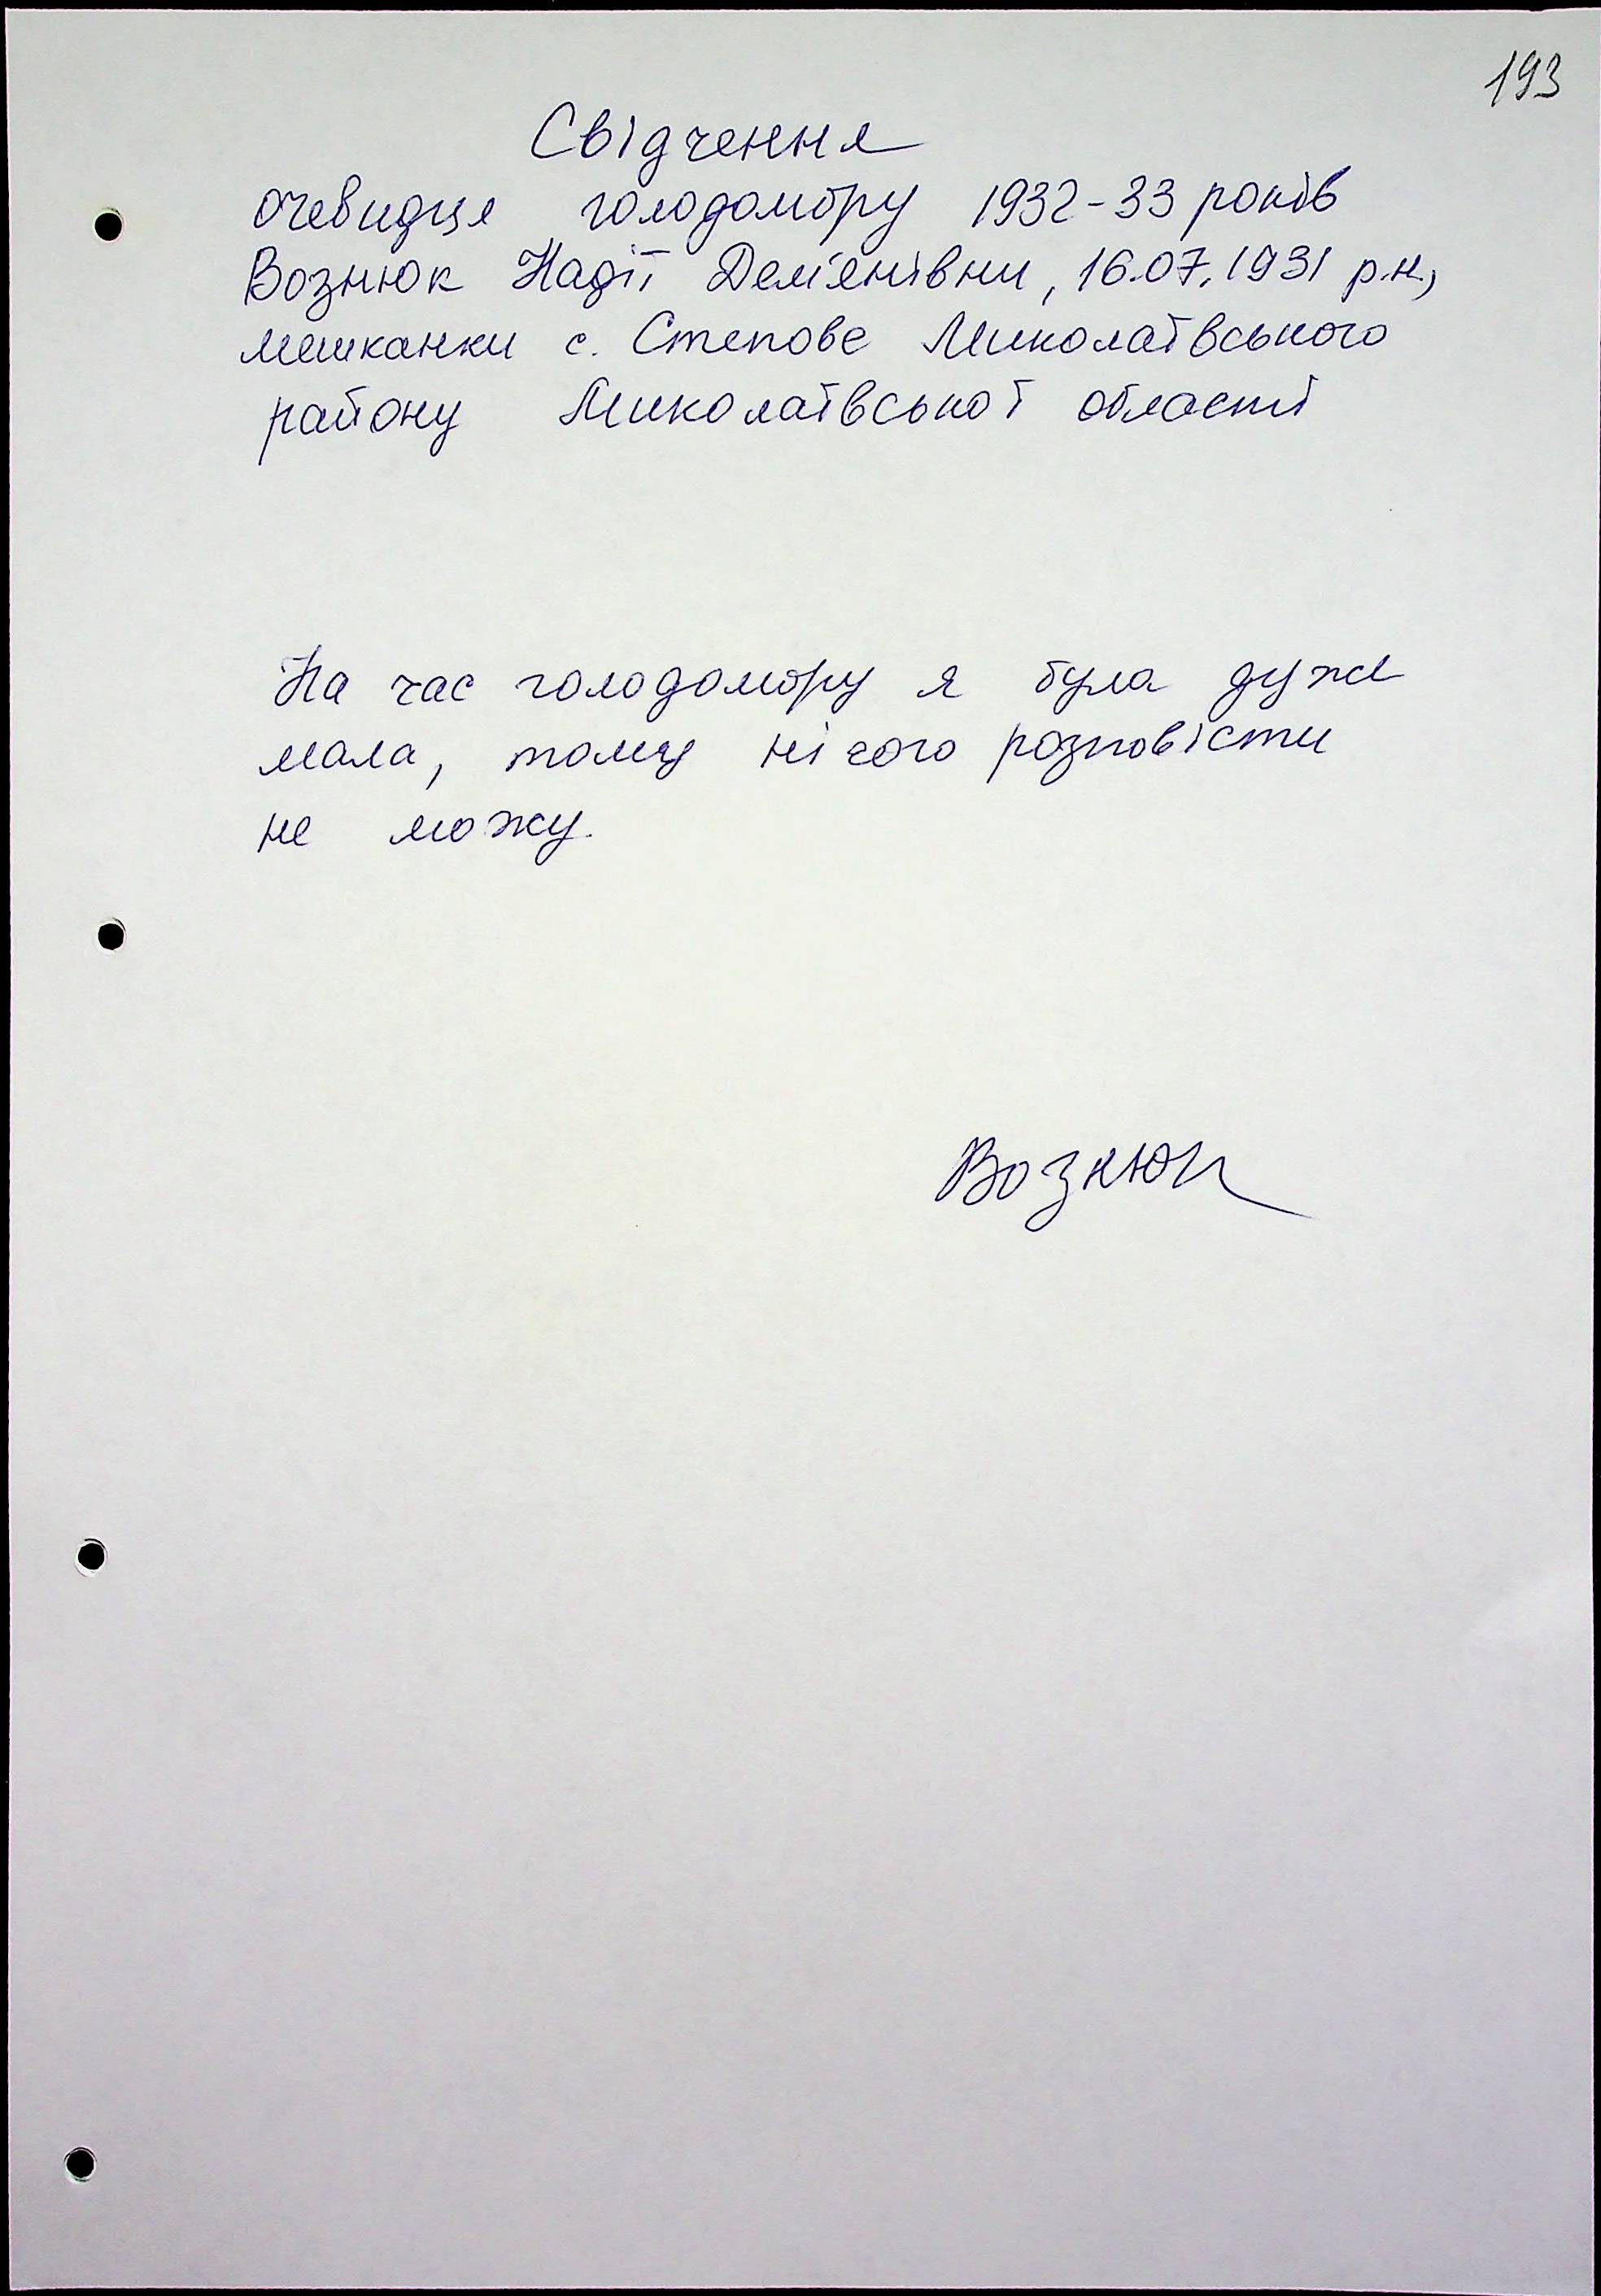 193
Свідчення
очевидця голодомору 1932-33 років
Вознюк Надії Дем'янівни, 16.07.1931 р.н.,
мешканки с. Степове Миколаївського
району Миколаївської області
На час голодомору я була дуже
мала, тому нічого розповісти
не можу.
Вознюк